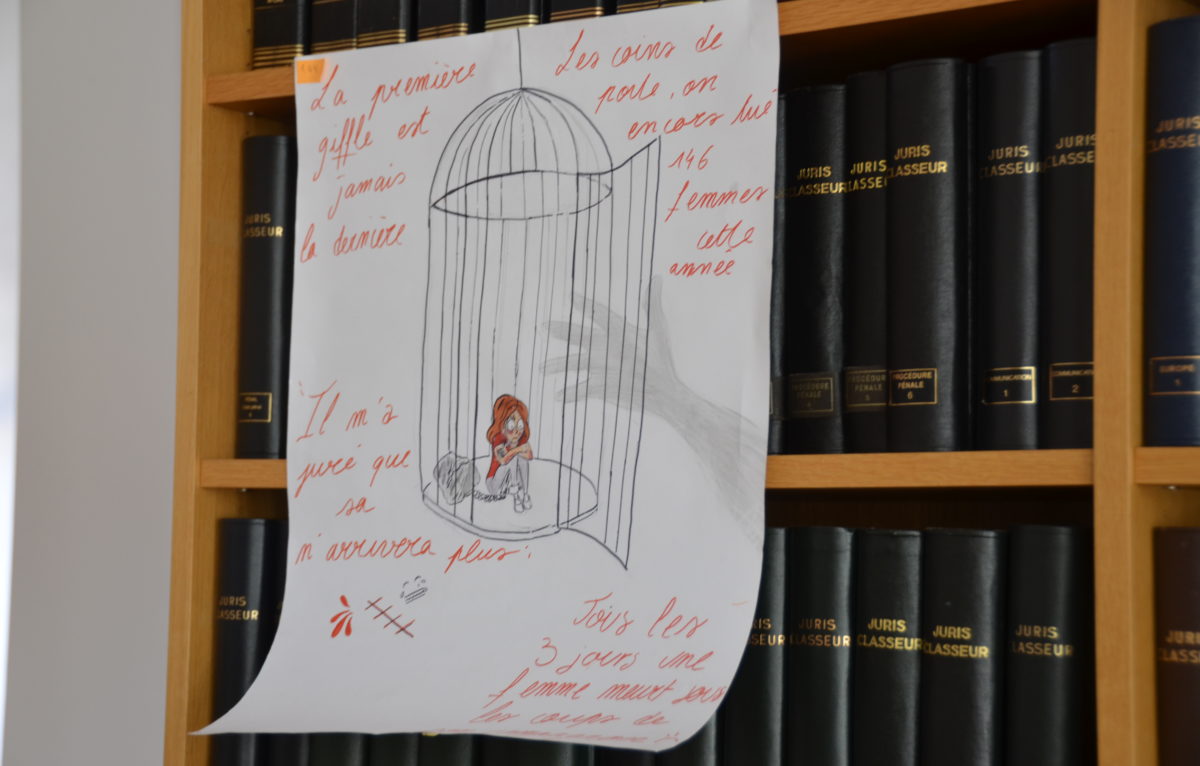 La première
giffle est
jamais
la dernière
Les coins de
porte, on
encors tué
146
femmes
cette
année
"Il m'a
juré que
sa
n'arrivera plus"
Tous les
3 jours une
femme meurt sous
les coups de
JURIS
CLASSEUR
JURIS
CLASSEUR
JURIS
CLASSEUR
JURIS
CLASSEUR
JURIS
CLASSEUR
JURIS
CLASSEUR
JURIS
CLASSEUR
PROCÉDURE
PÉNALE
4
PROCÉDURE
PÉNALE
5
PROCÉDURE
PÉNALE
6
COMMUNICATION
1
COMMUNICATION
2
EUROPE
5
JURIS
CLASSEUR
JURIS
CLASSEUR
JURIS
CLASSEUR
JURIS
CLASSEUR
JURIS
CLASSEUR
JURIS
CLASSEUR
JURIS
CLASSEUR